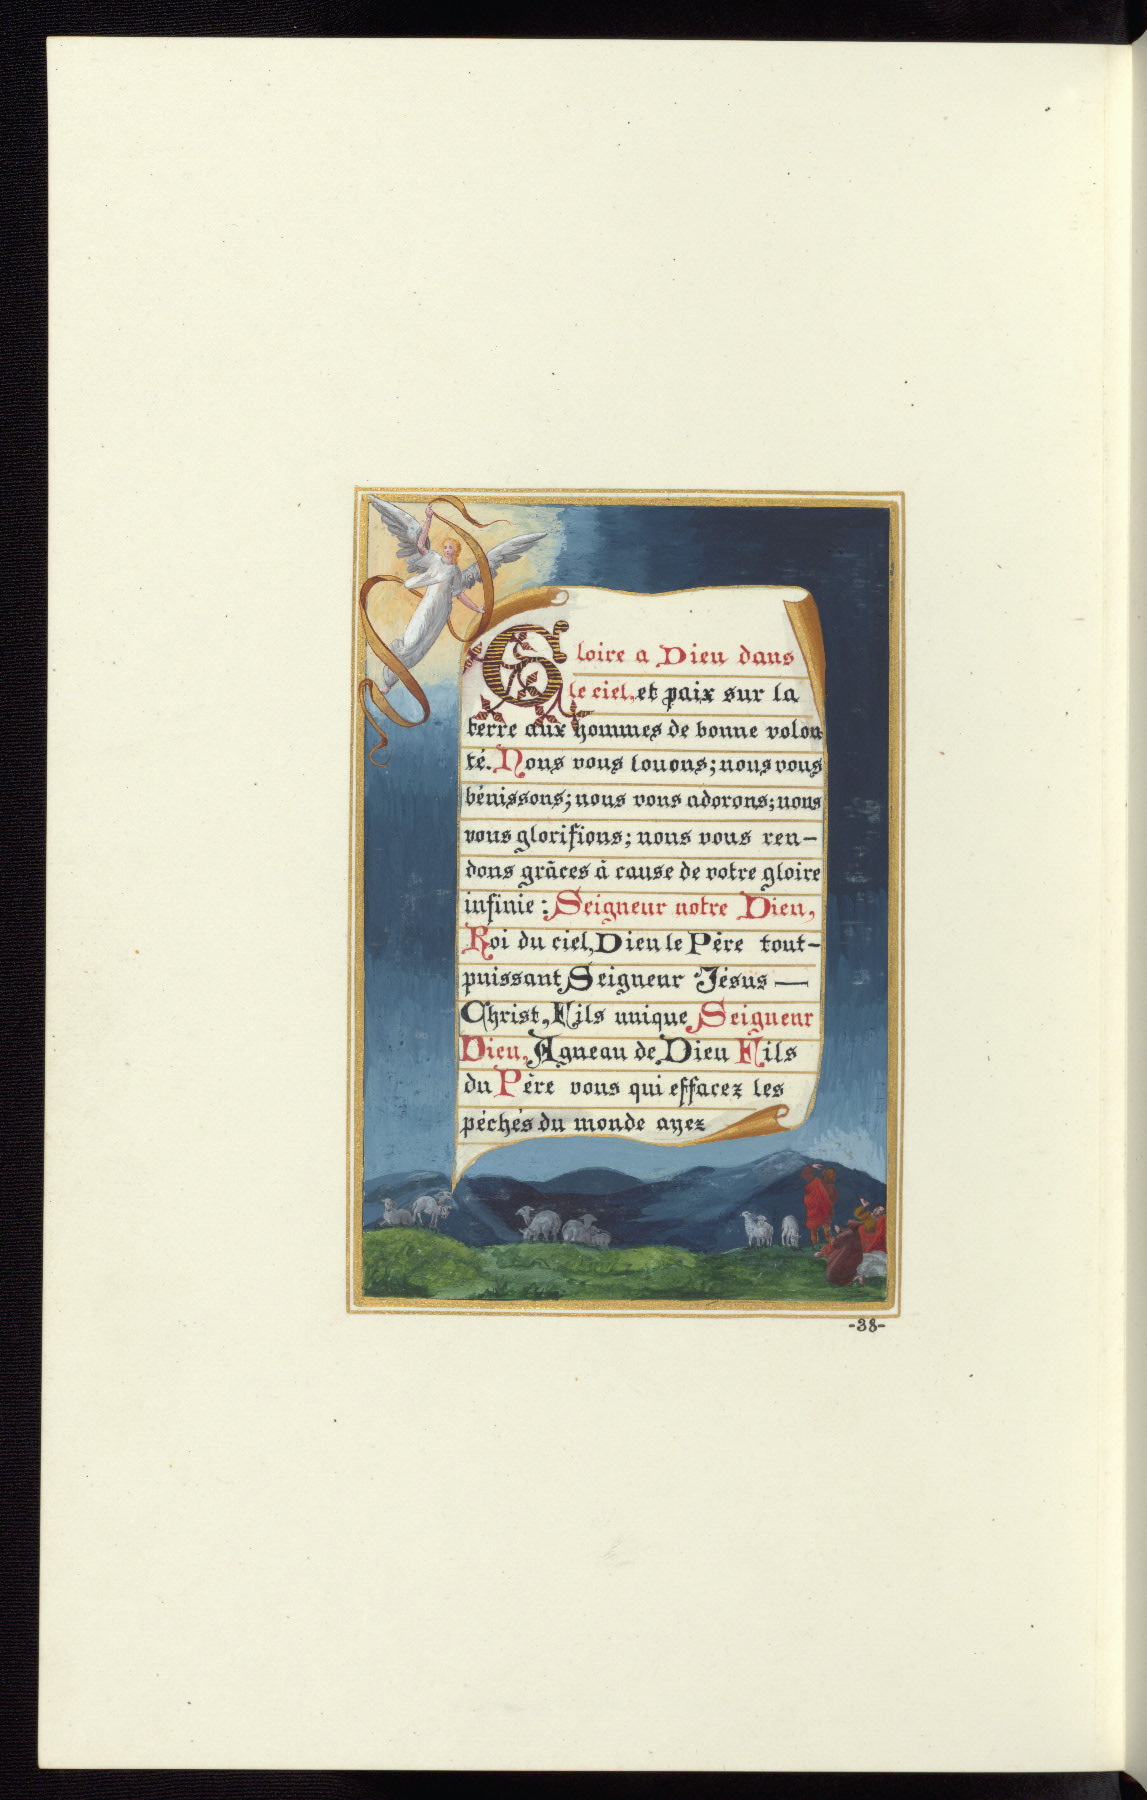 Gloire a Dieu dans
le ciel, et paix sur la
terre aux hommes de bonne volon
té. Nous vous louons; nous vous
bénissons; nous vous adorons; nous
vous glorifions; nous vous ren-
dons grâces à cause de votre gloire
infinie: Seigneur notre Dieu,
Roi du ciel, Dieu le Père tout-
puissant, Seigneur Jésus —
Christ, Fils unique, Seigneur
Dieu, Agneau de Dieu Fils
du Père vous qui effacez les
péchés du monde ayez
-38-